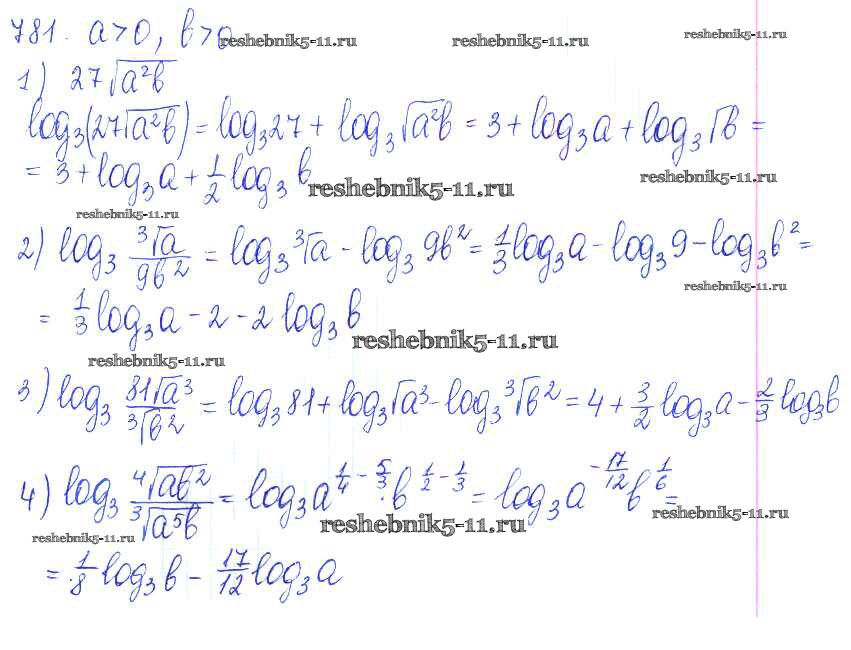 781. a>0, b>0
reshebnik5-11.ru reshebnik5-11.ru reshebnik5-11.ru
1) 27√(a²b)
log₃(27√(a²b)) = log₃27 + log₃√(a²b) = 3 + log₃a + log₃√b =
= 3 + log₃a + 1/2 log₃b
reshebnik5-11.ru reshebnik5-11.ru
reshebnik5-11.ru
2) log₃ ∛a/(9b²) = log₃∛a - log₃9b² = 1/3 log₃a - log₃9 - log₃b² =
reshebnik5-11.ru
= 1/3 log₃a - 2 - 2log₃b
reshebnik5-11.ru
reshebnik5-11.ru
3) log₃ 81√a³/∛b² = log₃81 + log₃√a³ - log₃∛b² = 4 + 3/2 log₃a - 2/3 log₃b
4) log₃ ∜(ab²)/∛(a⁵b) = log₃a^(1/4 - 5/3) · b^(1/2 - 1/3) = log₃a^(-17/12) b^(1/6) =
reshebnik5-11.ru reshebnik5-11.ru reshebnik5-11.ru
= 1/8 log₃b - 17/12 log₃a